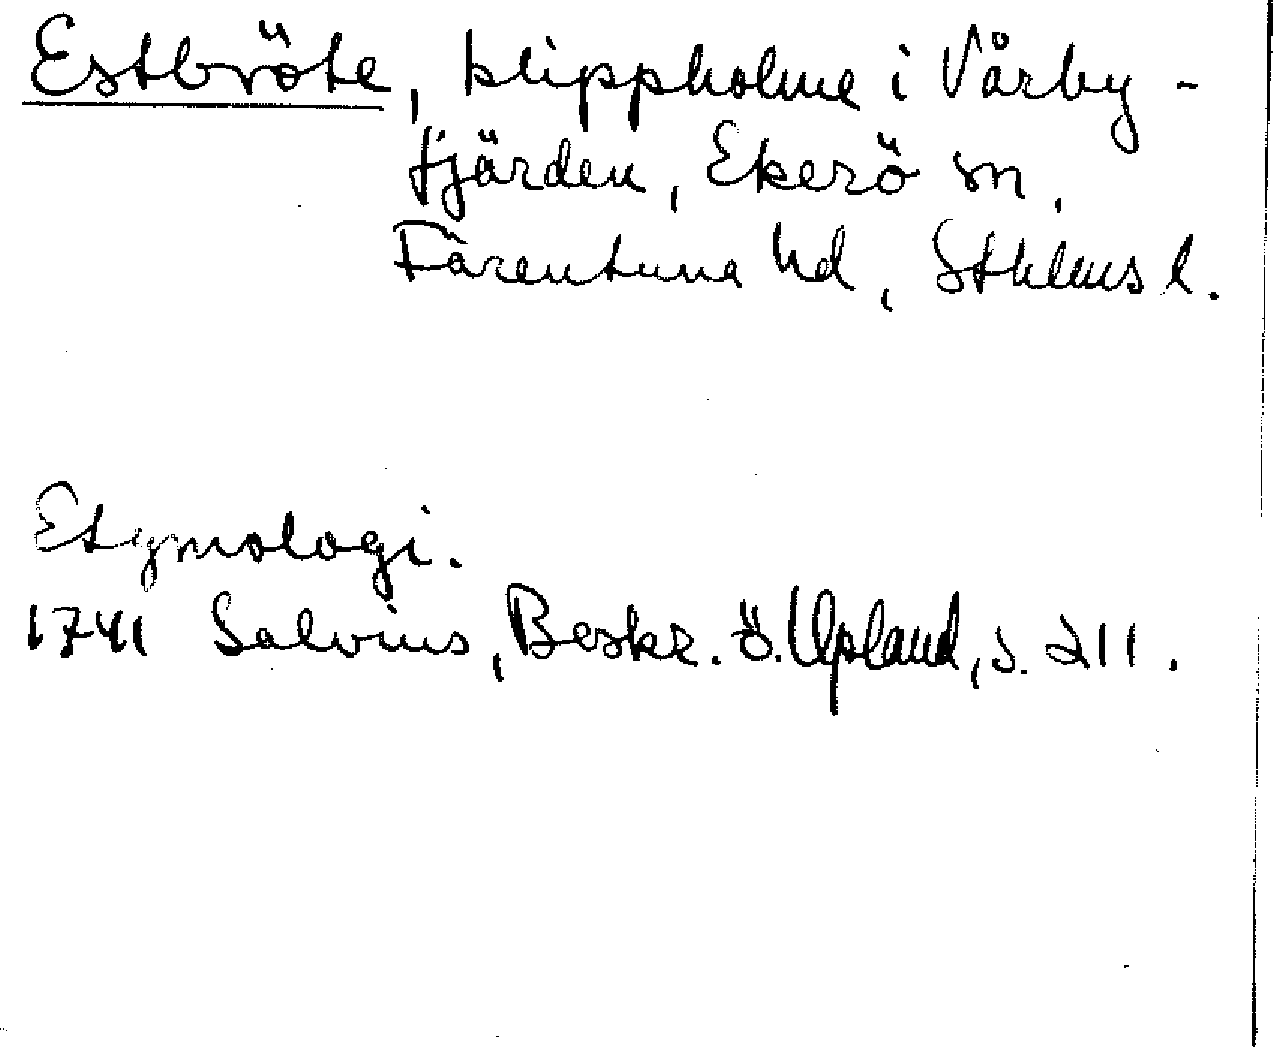 Estbröte, klippholme i Vårby-
fjärden, Ekerö sn,
Färentuna hd, Sthlms l.
Etymologi.
1741 Salvius, Beskr. ö. Upland, s. 211.